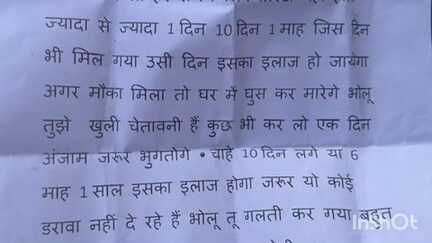 ज्यादा से ज्यादा 1 दिन 10 दिन 1 माह जिस दिन
भी मिल गया उसी दिन इसका इलाज हो जायेगा
अगर मौका मिला तो घर में घुस कर मारेगे भोलू
तुझे खुली चेतावनी हैं कुछ भी कर लो एक दिन
अंजाम जरूर भुगतोगे • चाहे 10 दिन लगे या 6
माह 1 साल इसका इलाज होगा जरूर यो कोई
डरावा नहीं दे रहे हैं भोलू तू गलती कर गया बहुत
InShOt